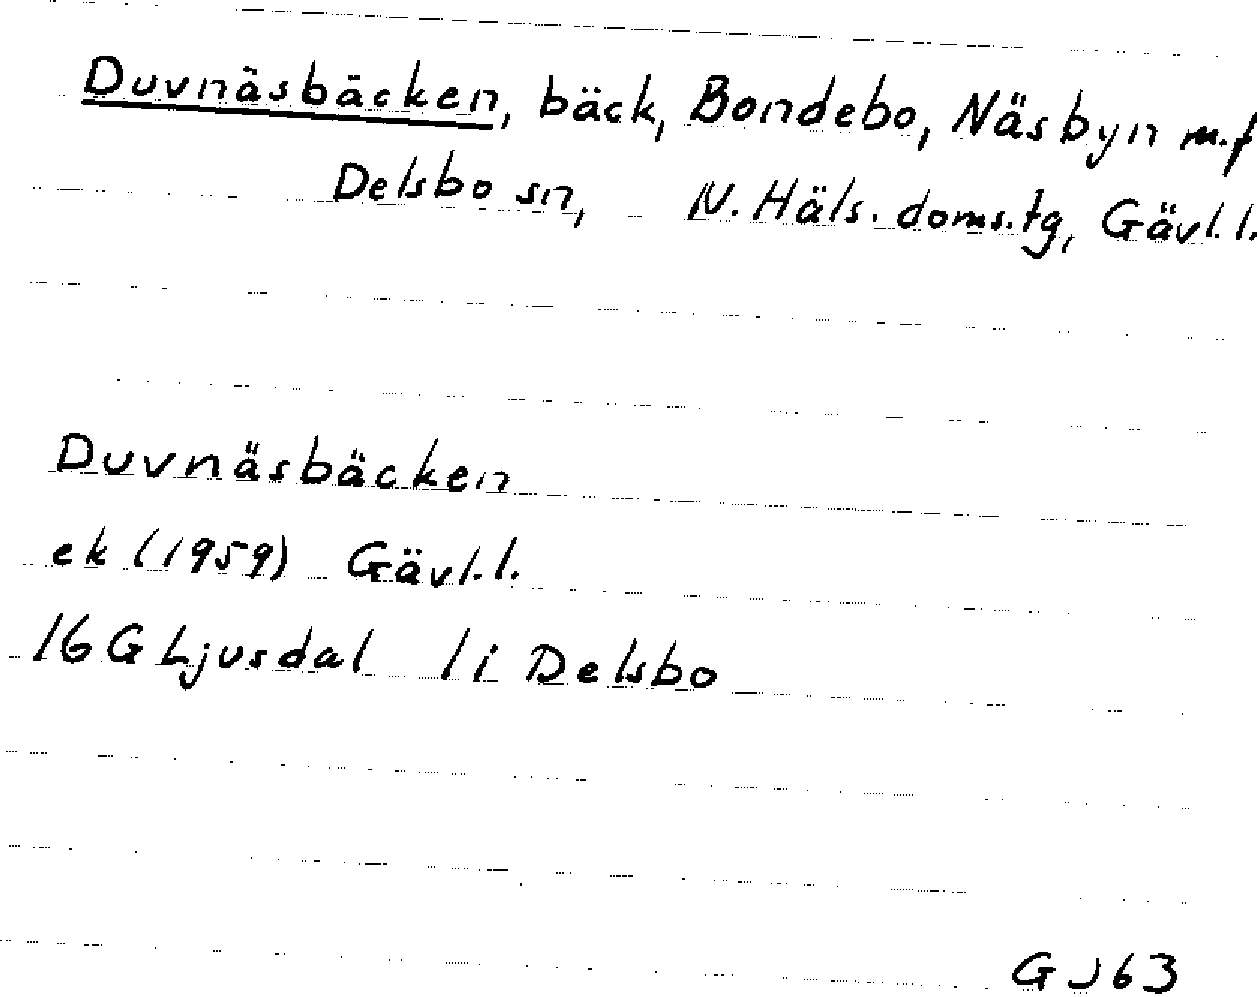 Duvnäsbäcken, bäck, Bondebo, Näsbyn m.f
Delsbo sn, N. Häls. doms.tg, Gävl. l.
Duvnäsbäcken
ek (1959) Gävl. l.
16 G Ljusdal 1 i Delsbo
GJ63